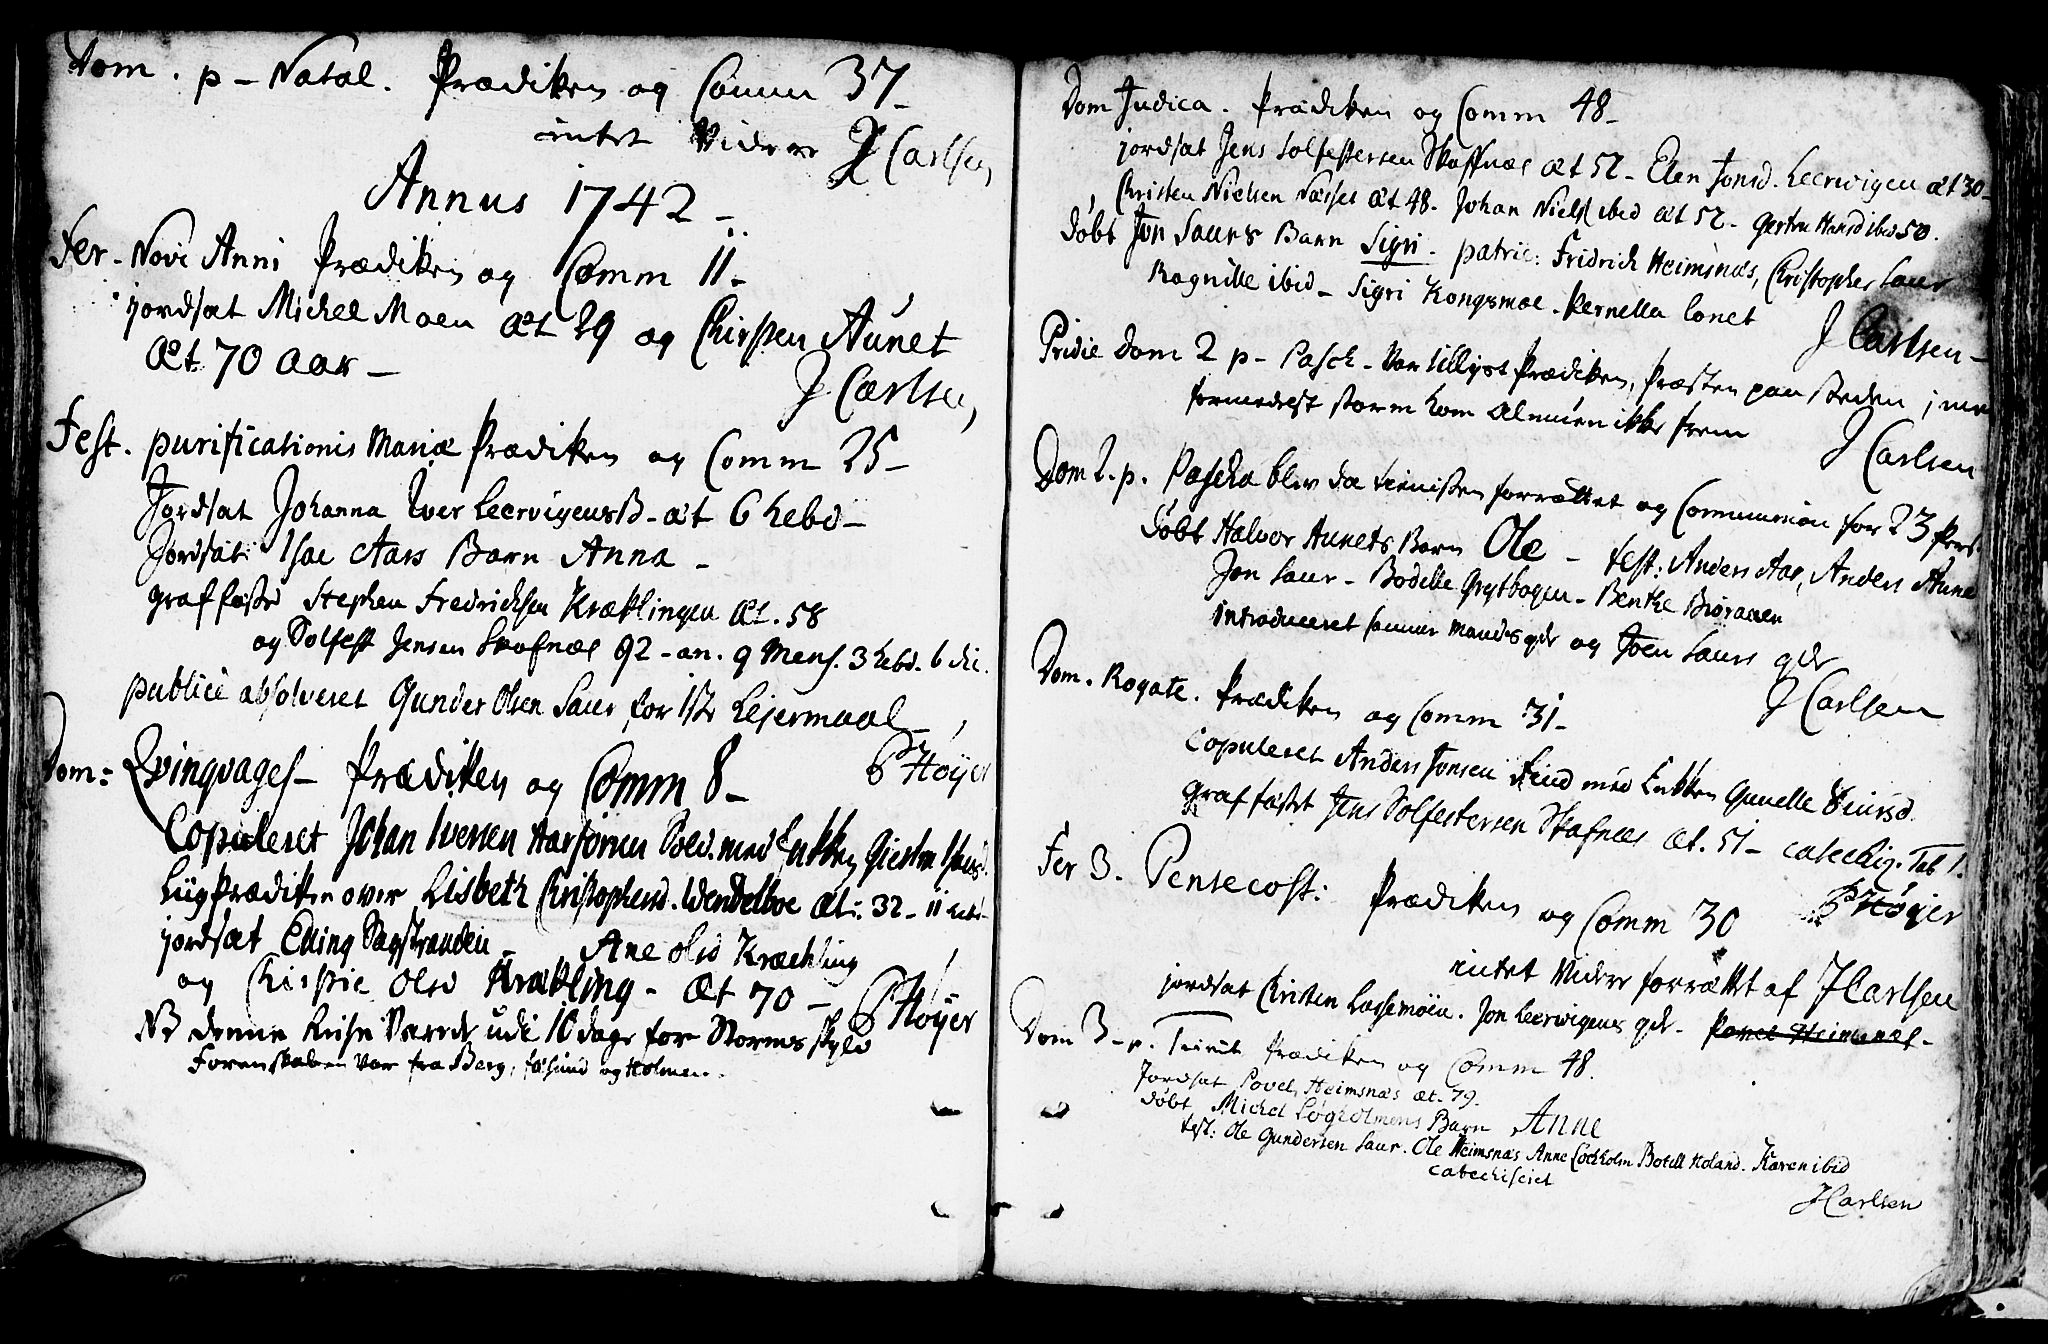 Dom. p - Natal. Prædiken og Comm 37 -
intet Videre J Carlsen,
Annus 1742 -
Fer. Novi Anni Prædiken og Comm 11 -
jordsat Michel Moen æt 29 og Chirsten Aunet
Æt. 70 aar -
J Carlsen,
Fest. purificationis Mariæ Prædiken og Comm 25 -
Jordsat Johanna Iver Leervigens B - æt 6 hebd -
Jordsat: Isac Aars Barn Anna -
graffæstd Stephen Fredrichsen Kræklingen Æt. 58
og Solfest Jensen Skafnæs 92 - an. 9 Mens. 3 hebd. 6 die.
publice absolveret Gunder Olsen Saur for 1ste Lejermaal -
P Høyer
Dom: Qvinqvages - Prædiken og Comm 8 -
Copuleret Johan Iversen Sold. med Enken
Liigprædiken over Lisbeth Christophersd. Wendelboe æt: 32 - 11 hebd -
jordsat Elling Sagstranden - Ane Olsd Krækling
og Chirstie Olsd Krækling - Æt 70 -
P Høyer
NB denne Reise Varede udi 10 dage for Storms skyld
Forenskaben var fra Berg, og Holmen.
Dom Judica. Prædiken og Comm 48 -
jordsat Jens Solfestersen Skaffnæs æt 52 - Elen Jonsd. Leervigen æt 30 -
Christen Nielsen Næsset æt 48. Johan Niels ibid æt 52 - Gertru Hansd ibid 50.
døbt Jon Saurs Barn Sigri - patrin: Fridrich Heimsnæs, Christopher Saur
Ragnille ibid - Sigri Kongsmoe - Pernella Lonet
J Carlsen -
Pridie Dom 2 p - Pasch - Var tillyst Prædiken, Præsten paa steden, men
formedelst storm kom Almuen ikke frem
J Carlsen
Dom 2. p. Pascha blev da tienisten forrættet og Communion for 23 Pers.
Døbt Halvor Aunets Barn Ole - test: Anders Aar, Anders Aune
Jon Saur - Bodille Grytbogen - Benthe
introduceret samme Mands qde og Joen Saurs qde
J Carlsen
Dom. Rogate. Prædiken og Comm 31 -
Copuleret Anders Jonsen med Enken Gunelle
graffæstet Jens Solfestersen Skafnæs æt. 51 - catechiz. Tab 1.
P Høyer
Fer 3. Pentecost: Prædiken og Comm 30
intet Videre forrættet af J Carlsen
jordsat Christen Lassemoen. Jon Leervigens qde - Povel Heimsnæs -
Dom 3 - p. Trinit Prædiken og Comm 48.
Jordsat Povel Heimsnæs æt. 79.
Døbt Michel Løgholmens Barn Anne
test: Ole Gundersen Saur. Ole Heimsnæs Anne Løchholm Botill Holand. Karen ibid
catechiseret
J Carlsen